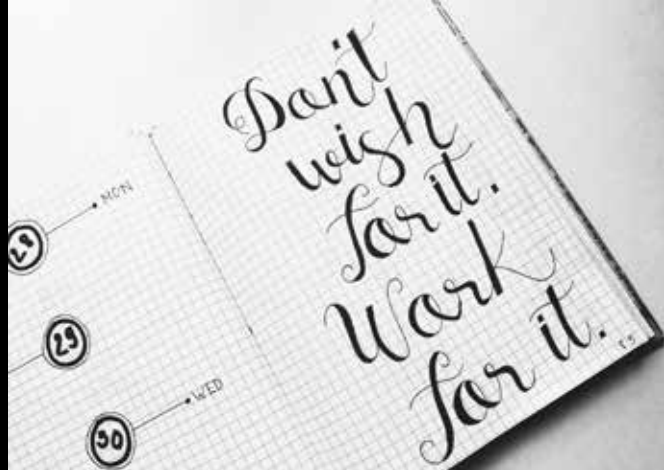 28 MON
29
30 WED
Don't
wish
for it.
Work
for it.